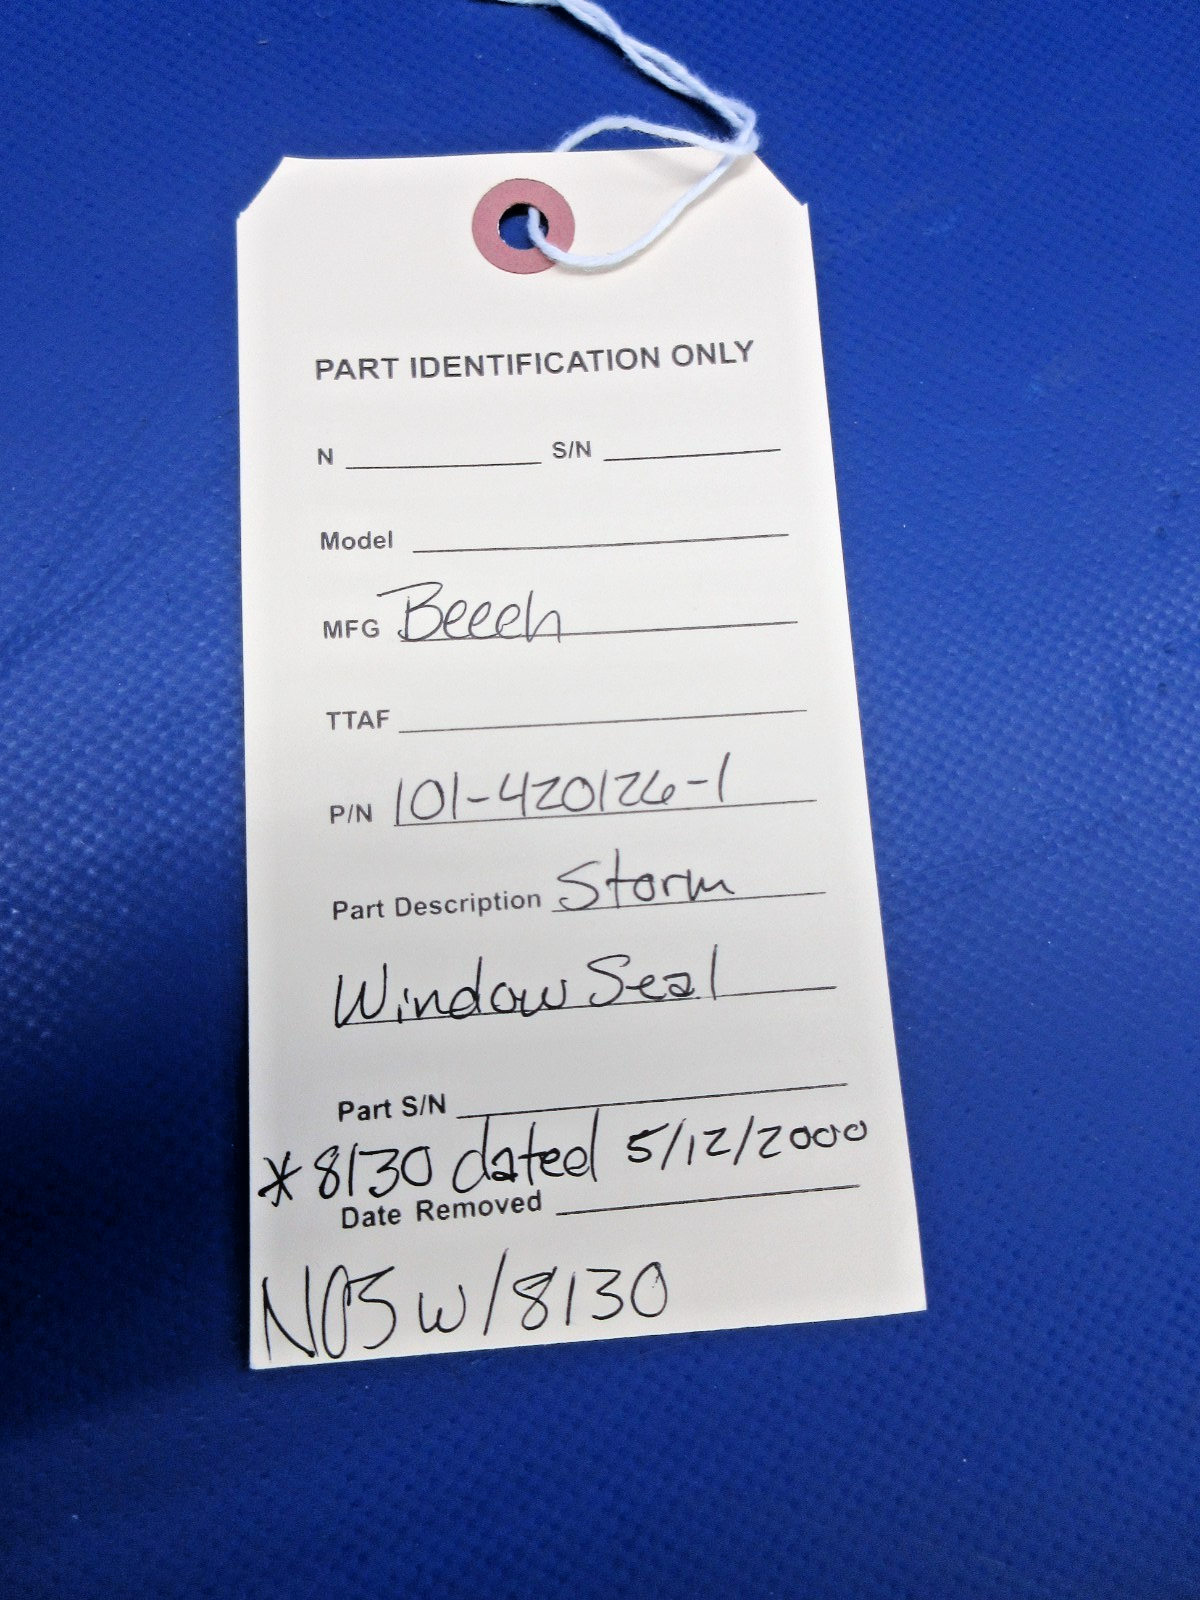 PART IDENTIFICATION ONLY
N S/N
Model
MFG Beech
TTAF
P/N 101-420126-1
Part Description Storm
Window Seal
Part S/N
*8130 dated 5/12/2000
Date Removed
NOS w/8130